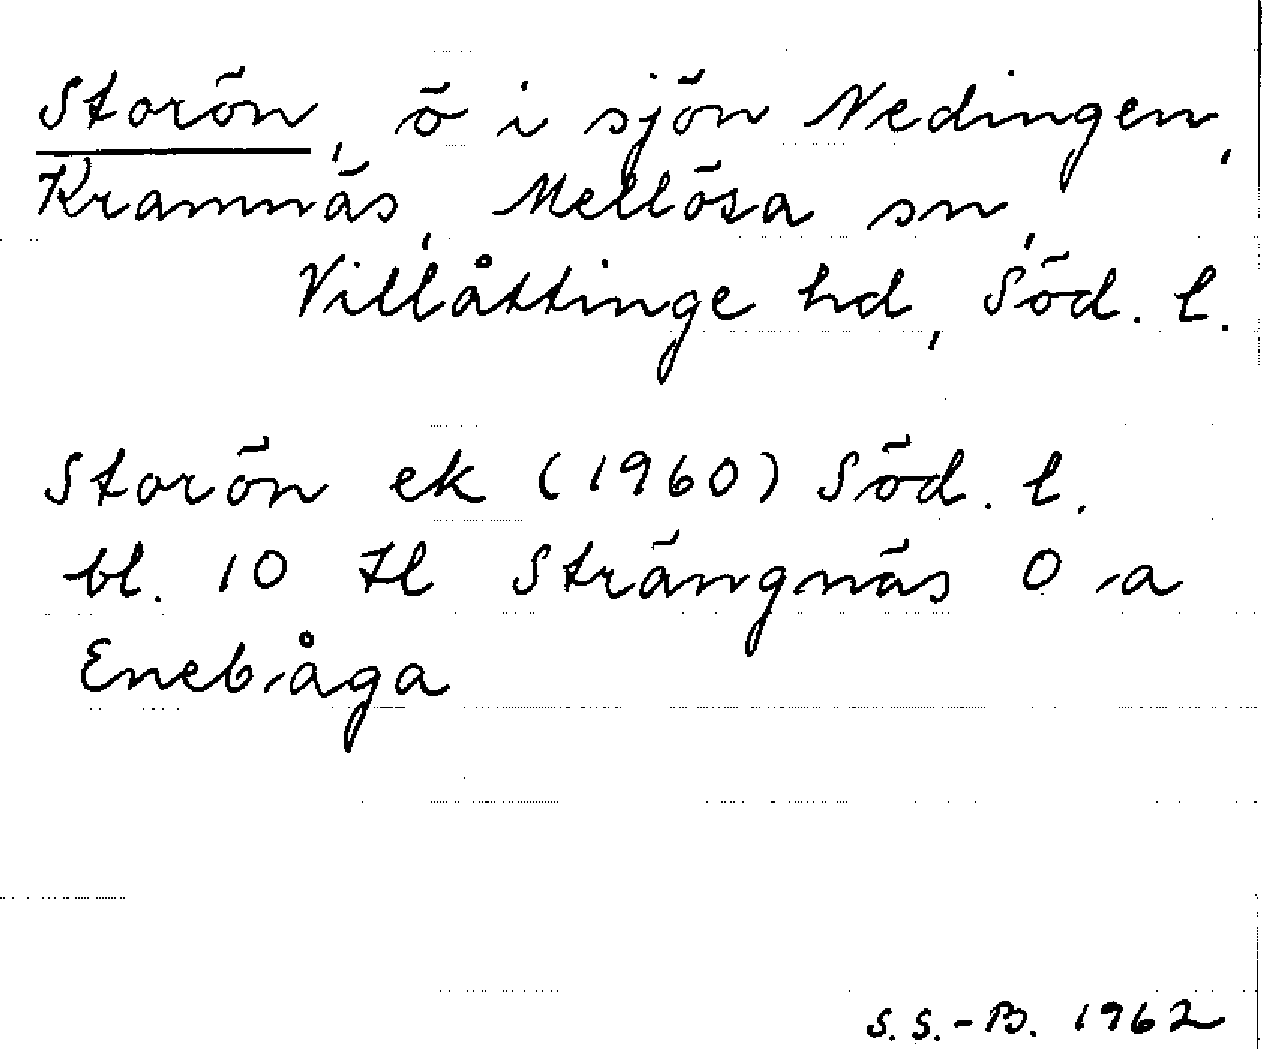 Storön, ö i sjön Nedingen,
Kramnäs, Mellösa sn,
Villåttinge hd, Söd. l.
Storön ek (1960) Söd. l.
bl. 10 H Strängnäs 0 a
Enebåga
S.S.-B. 1962